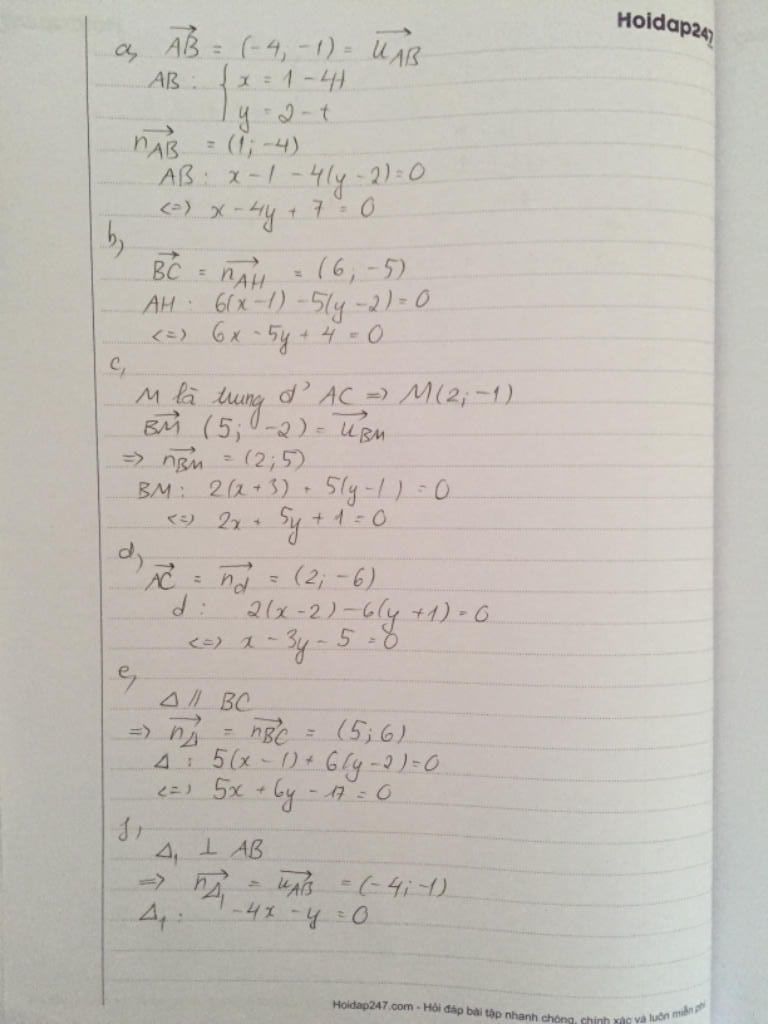 Hoidap247
a, AB→ = (-4, -1) = u_AB→
AB : { x = 1 - 4t
y = 2 - t
n_AB→ = (1; -4)
AB : x - 1 - 4(y - 2) = 0
<=> x - 4y + 7 = 0
b,
BC→ = n_AH→ = (6, -5)
AH : 6(x - 1) - 5(y - 2) = 0
<=> 6x - 5y + 4 = 0
c,
M là trung đ' AC => M(2; -1)
BM→ (5; -2) = u_BM→
=> n_BM→ = (2; 5)
BM : 2(x + 3) + 5(y - 1) = 0
<=> 2x + 5y + 1 = 0
d,
AC→ = n_d→ = (2; -6)
d : 2(x - 2) - 6(y + 1) = 0
<=> x - 3y - 5 = 0
e,
Δ // BC
=> n_Δ→ = n_BC→ = (5; 6)
Δ : 5(x - 1) + 6(y - 2) = 0
<=> 5x + 6y - 17 = 0
f,
Δ₁ ⊥ AB
=> n_Δ₁→ = u_AB→ = (-4; -1)
Δ₁ : -4x - y = 0
Hoidap247.com - Hỏi đáp bài tập nhanh chóng, chính xác và luôn miễn phí